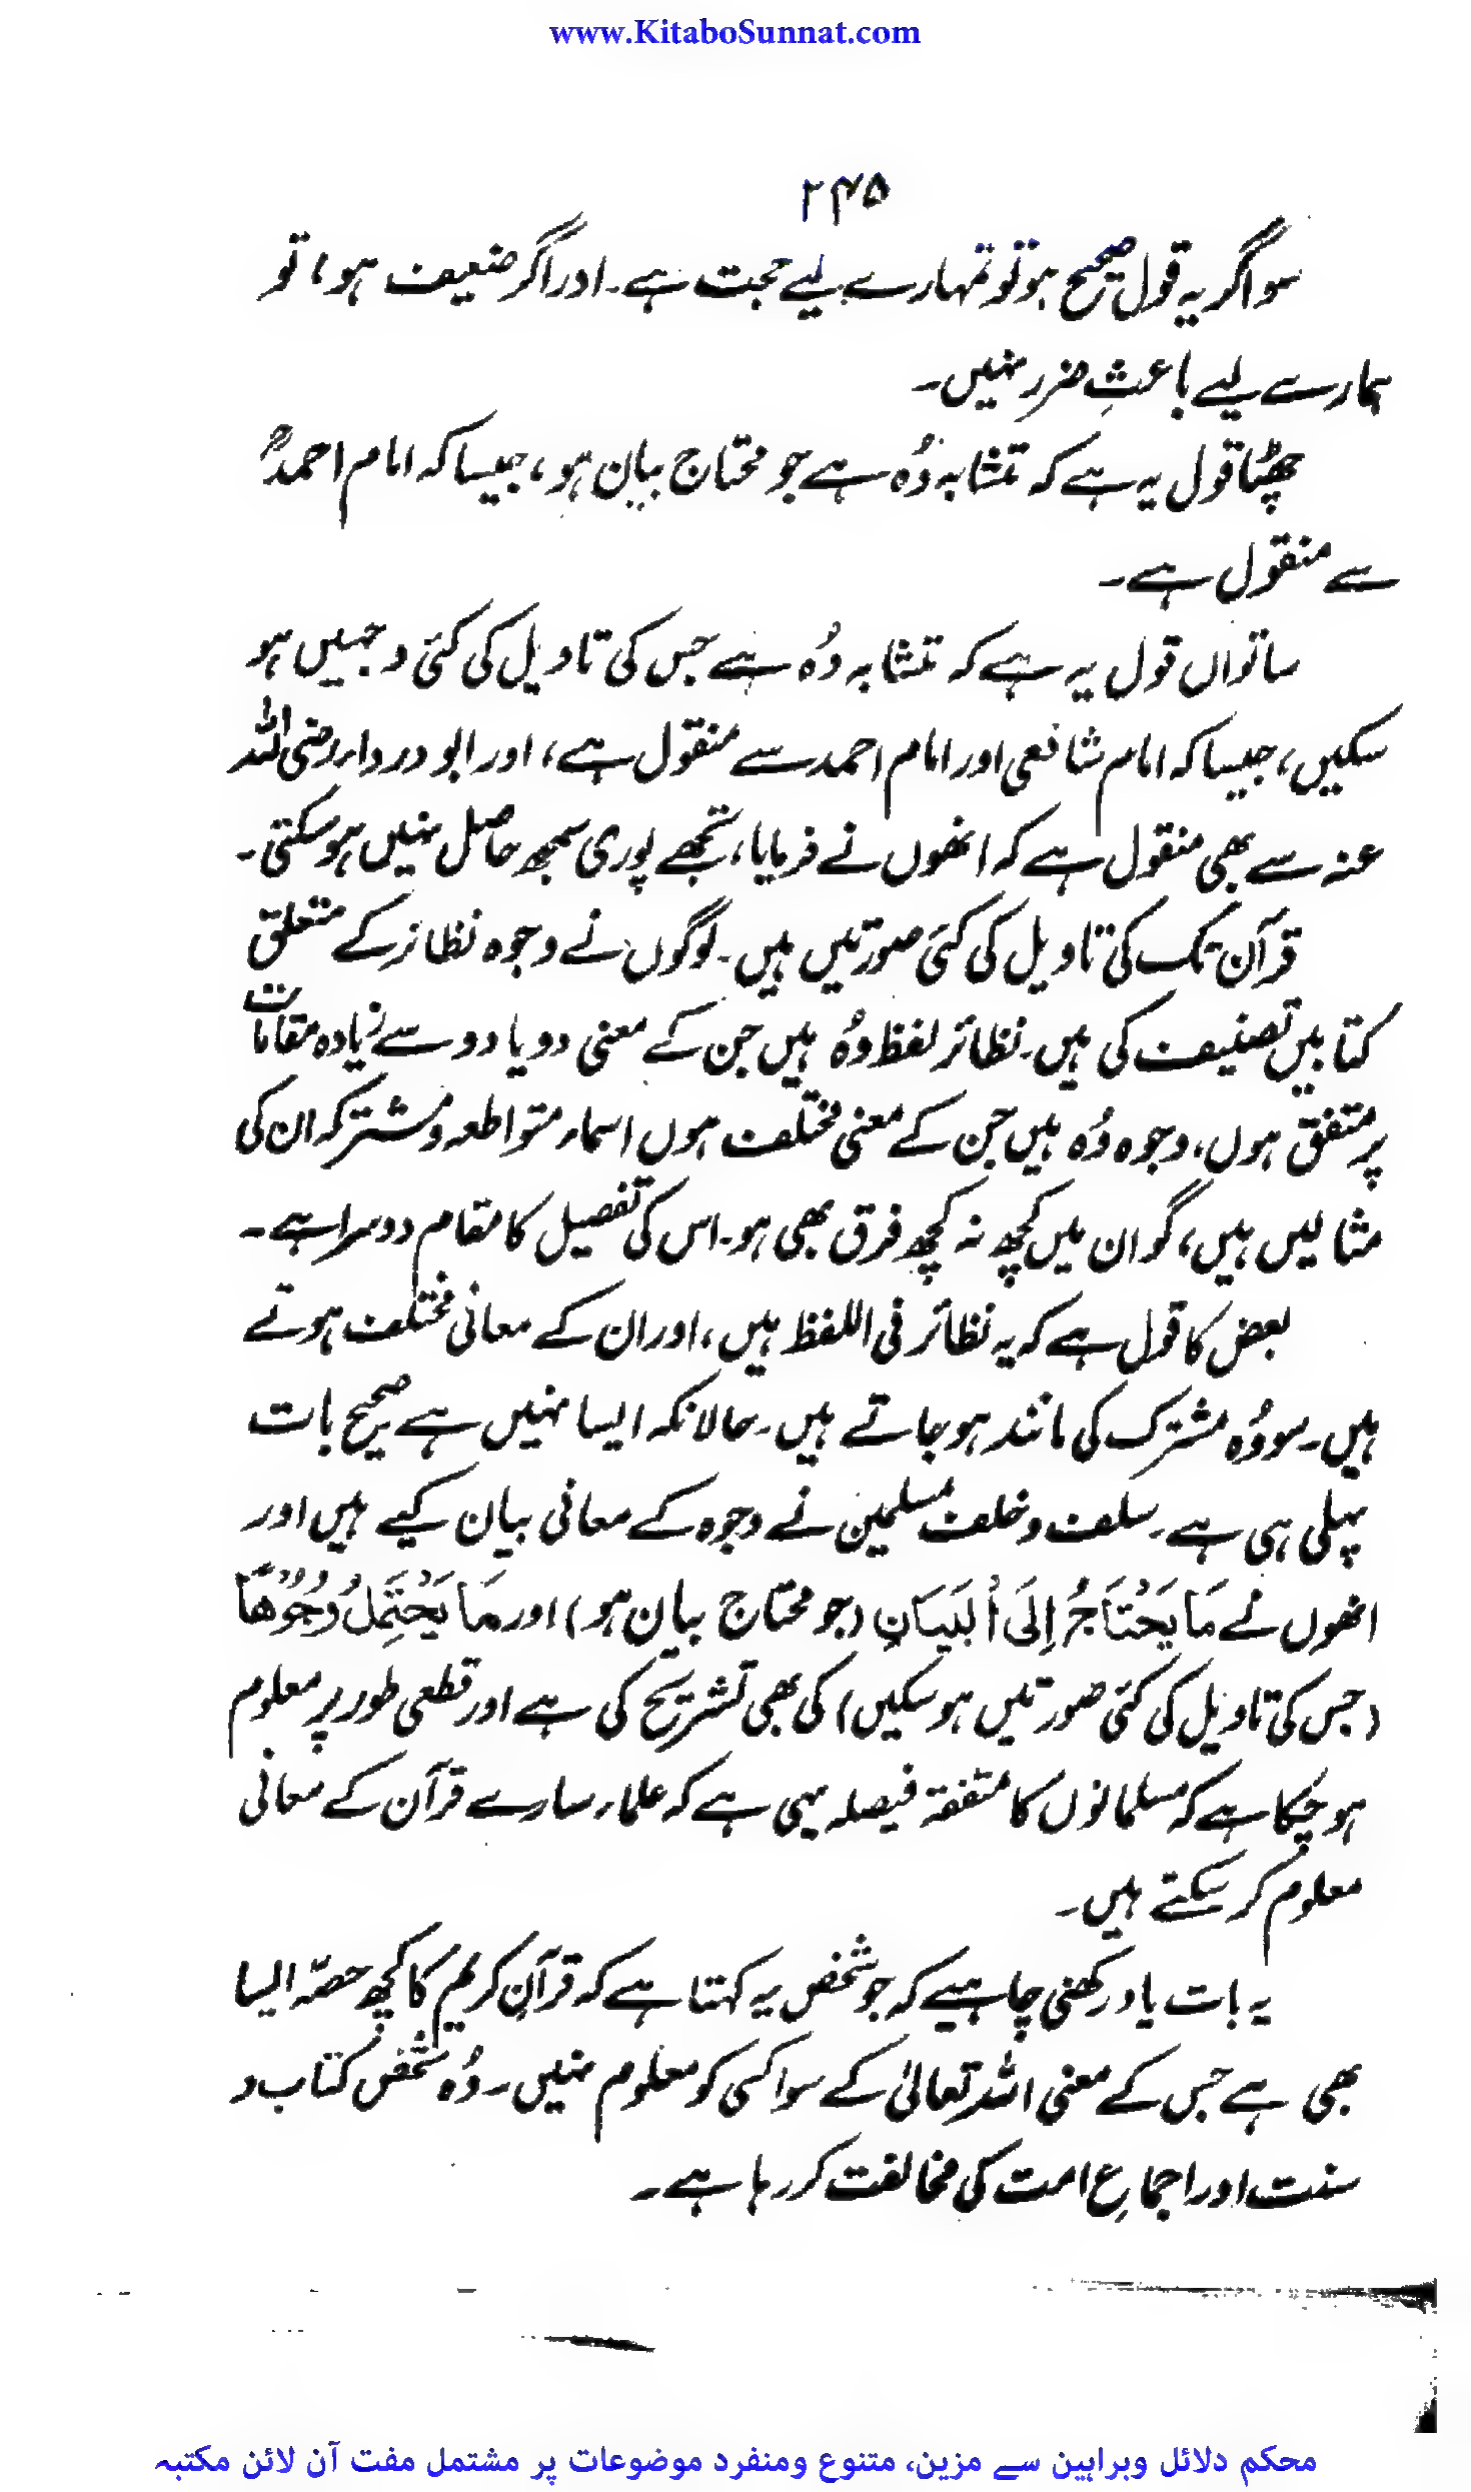 www.KitaboSunnat.com
۲۴۵
سو اگر یہ قول صحیح ہو تو تمہارے لیے حجت ہے۔ اور اگر ضعیف ہو، تو
ہمارے لیے باعثِ ضرر نہیں۔
چھٹا قول یہ ہے کہ تمشابہ وُہ ہے جو محتاج بیان ہو، جیسا کہ امام احمدؒ
سے منقول ہے۔
ساتواں قول یہ ہے کہ تمشابہ وُہ ہے جس کی تاویل کی کئی وجہیں ہو
سکیں، جیسا کہ امام شافعی اور امام احمد سے منقول ہے، اور ابو درداء رضی اللہ
عنہ سے بھی منقول ہے کہ انھوں نے فرمایا، تجھے پوری سمجھ حاصل نہیں ہو سکتی۔
قرآن تک کی تاویل کی کئی صورتیں ہیں۔ لوگوں نے وجوہ نظائر کے متعلق
کتابیں تصنیف کی ہیں۔ نظائر لفظ وُہ ہیں جن کے معنی دو یا دو سے زیادہ مقامات
پر متفق ہوں، وجوہ وُہ ہیں جن کے معنی مختلف ہوں اسماء متواطعہ و مشترکہ ان کی
مثالیں ہیں، گو ان میں کچھ نہ کچھ فرق بھی ہو۔ اس کی تفصیل کا مقام دوسرا ہے۔
بعض کا قول ہے کہ یہ نظائر فی اللفظ ہیں، اور ان کے معانی مختلف ہوتے
ہیں۔ سو وُہ مشترک کی مانند ہو جاتے ہیں۔ حالانکہ ایسا نہیں ہے صحیح بات
پہلی ہی ہے۔ سلف و خلف مسلمین نے وجوہ کے معانی بیان کیے ہیں اور
انھوں نے مَا يَحْتَاجُ إِلَى الْبَيَانِ (جو محتاج بیان ہو) اور مَا يَحْتَمِلُ وُجُوْهًا
(جس کی تاویل کی کئی صورتیں ہو سکیں) کی بھی تشریح کی ہے اور قطعی طور پر معلوم
ہو چُکا ہے کہ مسلمانوں کا متفقہ فیصلہ یہی ہے کہ علماء سارے قرآن کے معانی
معلوم کر سکتے ہیں۔
یہ بات یاد رکھنی چاہیے کہ جو شخص یہ کہتا ہے کہ قرآن کریم کا کچھ حصّہ ایسا
بھی ہے جس کے معنی اللہ تعالیٰ کے سوا کسی کو معلوم نہیں۔ وُہ شخص کتاب و
سنت اور اجماعِ امت کی مخالفت کر رہا ہے۔
محکم دلائل وبراہین سے مزین، متنوع ومنفرد موضوعات پر مشتمل مفت آن لائن مکتبہ